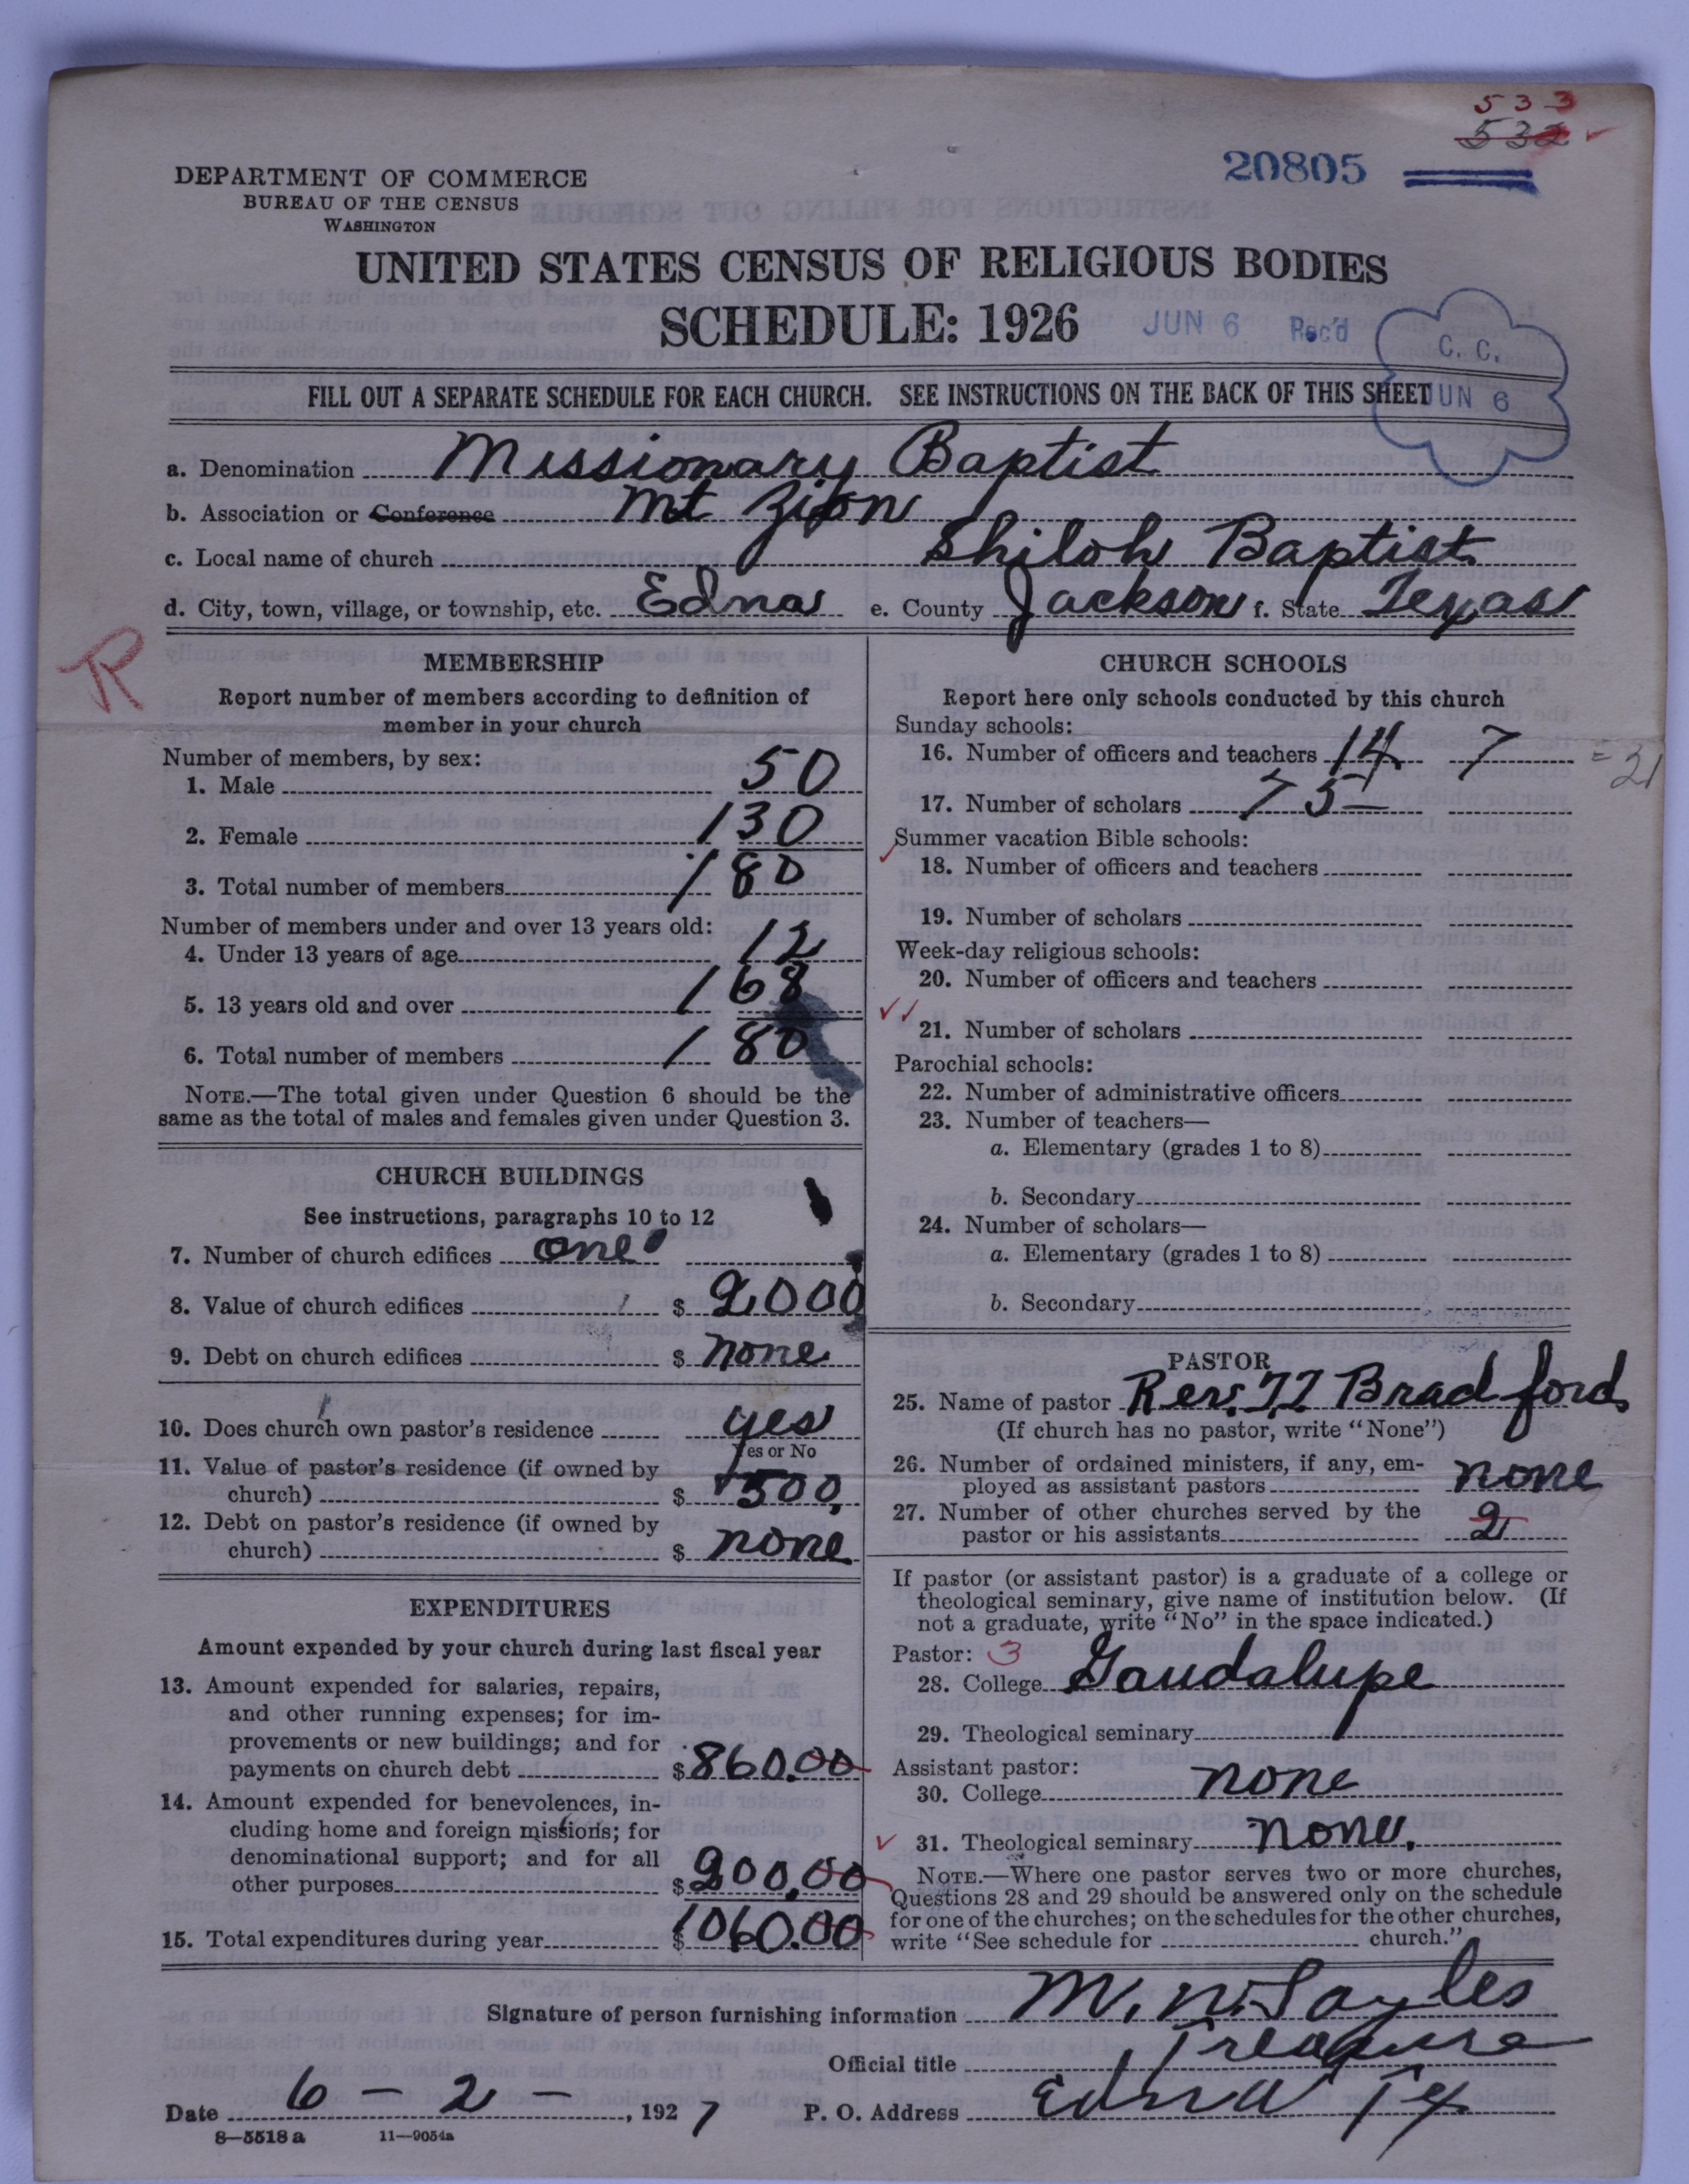 533
532
20805
DEPARTMENT OF COMMERCE
BUREAU OF THE CENSUS
WASHINGTON
UNITED STATES CENSUS OF RELIGIOUS BODIES
SCHEDULE: 1926
JUN 6 Rec'd
C. C.
JUN 6
FILL OUT A SEPARATE SCHEDULE FOR EACH CHURCH. SEE INSTRUCTIONS ON THE BACK OF THIS SHEET
a. Denomination Missionary Baptist
b. Association or Conference Mt Zion
c. Local name of church Shiloh Baptist
d. City, town, village, or township, etc. Edna e. County Jackson f. State Texas
R
MEMBERSHIP
Report number of members according to definition of
member in your church
Number of members, by sex:
1. Male 50
2. Female 130
3. Total number of members 180
Number of members under and over 13 years old:
4. Under 13 years of age 12
5. 13 years old and over 168
6. Total number of members 180
NOTE.—The total given under Question 6 should be the
same as the total of males and females given under Question 3.
CHURCH BUILDINGS
See instructions, paragraphs 10 to 12
7. Number of church edifices one
8. Value of church edifices $ 2000
9. Debt on church edifices $ none
10. Does church own pastor's residence yes
Yes or No
11. Value of pastor's residence (if owned by
church) $ 500.
12. Debt on pastor's residence (if owned by
church) $ none
EXPENDITURES
Amount expended by your church during last fiscal year
13. Amount expended for salaries, repairs,
and other running expenses; for im-
provements or new buildings; and for
payments on church debt $ 860.00
14. Amount expended for benevolences, in-
cluding home and foreign missions; for
denominational support; and for all
other purposes $ 200.00
15. Total expenditures during year $ 1060.00
CHURCH SCHOOLS
Report here only schools conducted by this church
Sunday schools:
16. Number of officers and teachers 14 7 = 21
17. Number of scholars 75
Summer vacation Bible schools:
18. Number of officers and teachers
19. Number of scholars
Week-day religious schools:
20. Number of officers and teachers
21. Number of scholars
Parochial schools:
22. Number of administrative officers
23. Number of teachers—
a. Elementary (grades 1 to 8)
b. Secondary
24. Number of scholars—
a. Elementary (grades 1 to 8)
b. Secondary
PASTOR
25. Name of pastor Rev. Bradford
(If church has no pastor, write "None")
26. Number of ordained ministers, if any, em-
ployed as assistant pastors none
27. Number of other churches served by the
pastor or his assistants 2
If pastor (or assistant pastor) is a graduate of a college or
theological seminary, give name of institution below. (If
not a graduate, write "No" in the space indicated.)
Pastor: 3
28. College Gaudalupe
29. Theological seminary
Assistant pastor:
30. College none
31. Theological seminary none.
NOTE.—Where one pastor serves two or more churches,
Questions 28 and 29 should be answered only on the schedule
for one of the churches; on the schedules for the other churches,
write "See schedule for church."
Signature of person furnishing information M. N. Sayles
Official title Treasure
Date 6 - 2 - , 1927 P. O. Address Edna Tex
8—5518 a 11—9054a